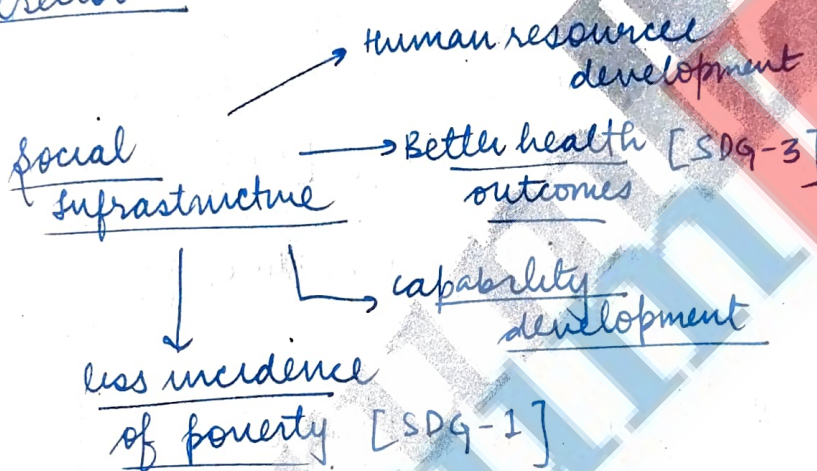 Human resource
development
Social
Infrastructure
Better health [SDG-3]
outcomes
capability
development
less incidence
of poverty [SDG-1]